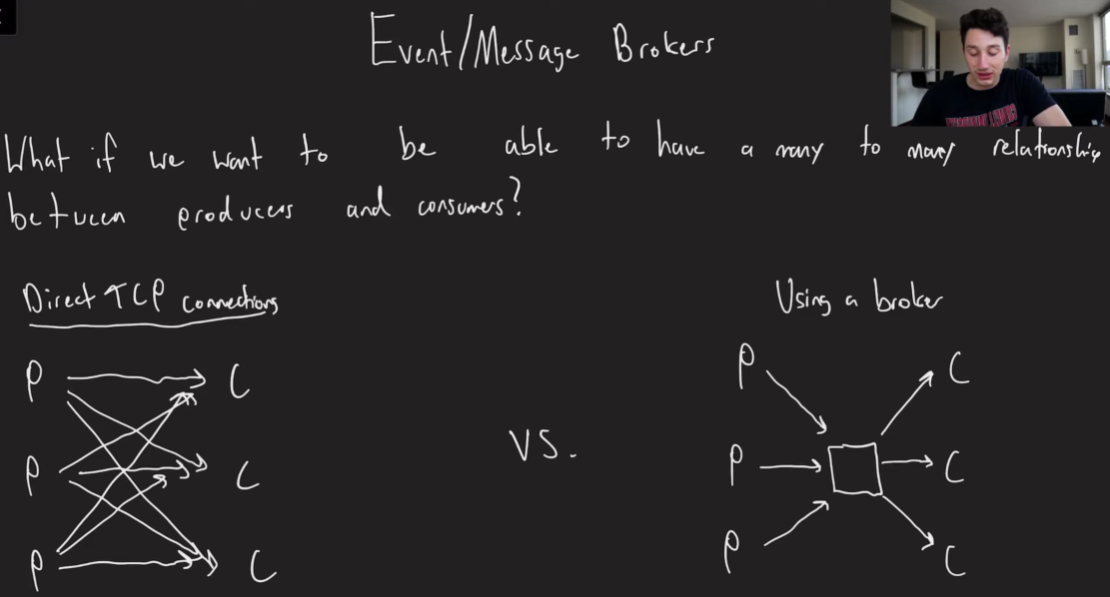 Event/Message Brokers
What if we want to be able to have a many to many relationship
between producers and consumers?
Direct TCP connections
Using a broker
P C
P C
P C
VS.
P C
P C
P C